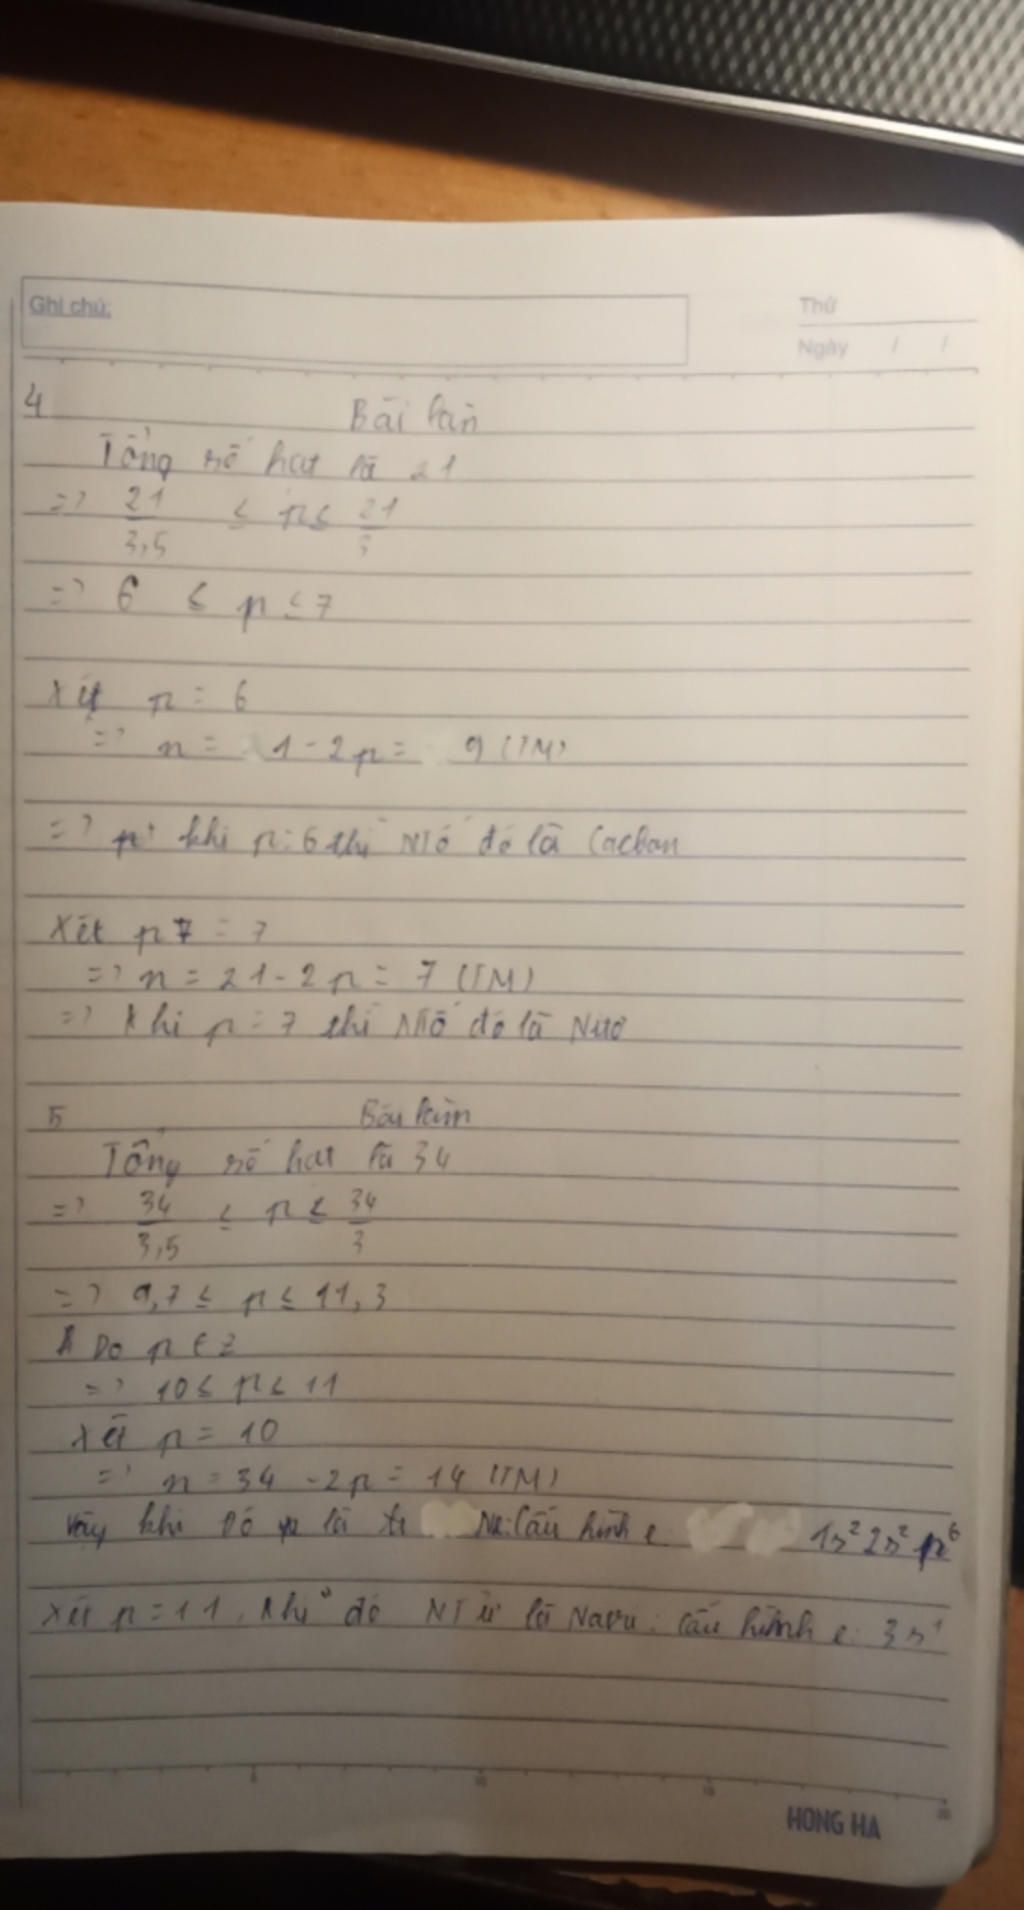 Ghi chú:
Thứ
Ngày / /
4 Bài làm
Tổng số hạt là 21
=> 21/3,5 ≤ p ≤ 21/3
=> 6 ≤ p ≤ 7
Xét p = 6
=> n = 1 - 2p = 9 (TM)
=> khi p = 6 thì NTố đó là Cacbon
Xét p = 7
=> n = 21 - 2p = 7 (TM)
=> Khi p = 7 thì NTố đó là Nitơ
5 Bài làm
Tổng số hạt là 34
=> 34/3,5 ≤ p ≤ 34/3
=> 9,7 ≤ p ≤ 11,3
Do p ∈ Z
=> 10 ≤ p ≤ 11
Xét p = 10
=> n = 34 - 2p = 14 (TM)
Vậy khi đó là Ne: Cấu hình e 1s² 2s² p⁶
Xét p = 11, Khi đó NTử là Natri: Cấu hình e: 3s¹
5 10 15 20
HONG HA